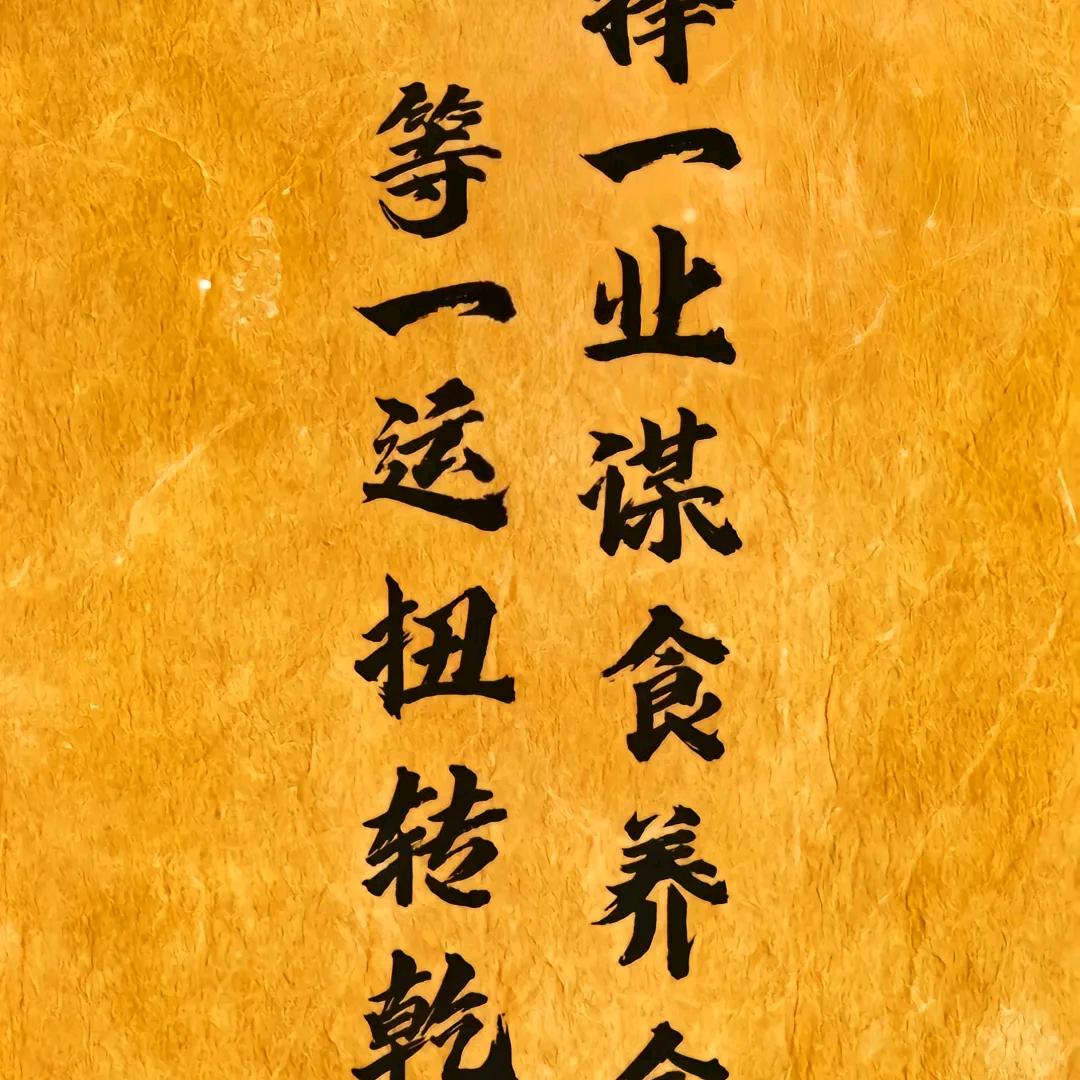 择一业谋食养
等一运扭转乾